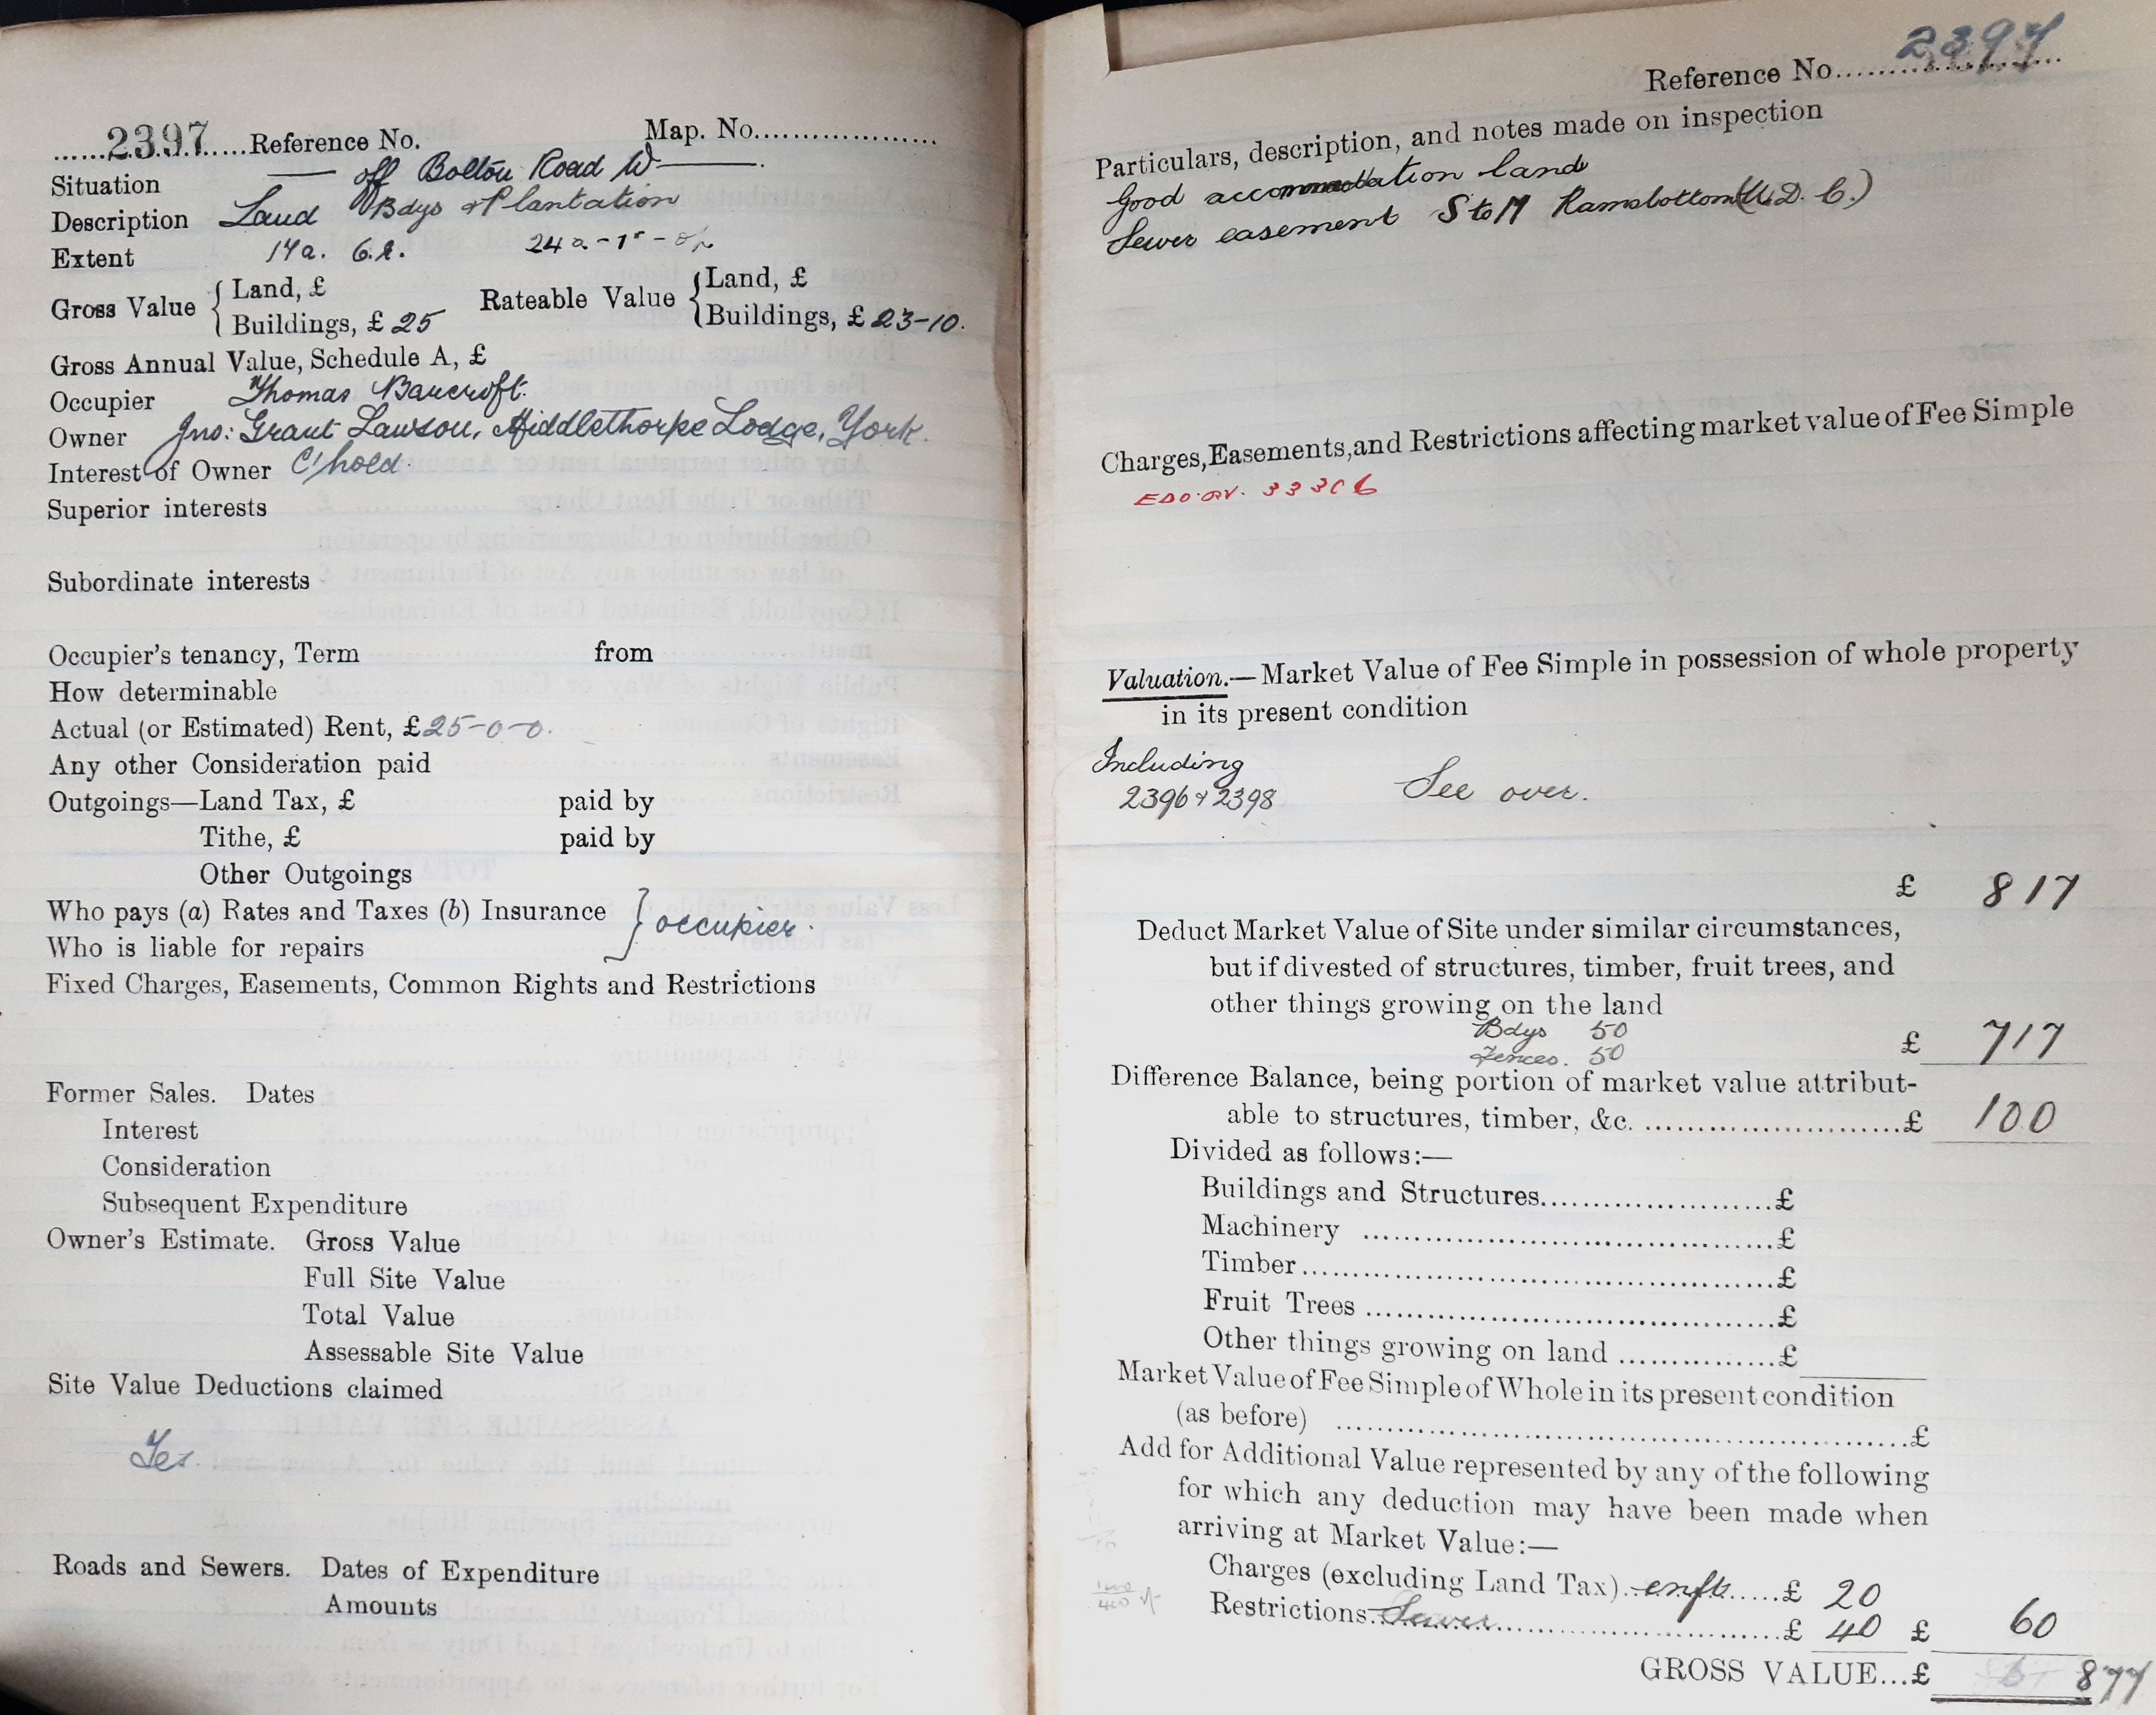 ......2397......Reference No. Map. No..................
Situation — off Bolton Road W—
Description Land Bdys & Plantation
Extent 14a. 6.p. 24a.-1r-
Gross Value { Land, £ Rateable Value { Land, £
Buildings, £ 25 Buildings, £ 23-10.
Gross Annual Value, Schedule A, £
Occupier Thomas Bancroft.
Owner Jno: Grant Lawson, Middlethorpe Lodge, York.
Interest of Owner C'hold.
Superior interests
Subordinate interests
Occupier's tenancy, Term from
How determinable
Actual (or Estimated) Rent, £25-0-0.
Any other Consideration paid
Outgoings—Land Tax, £ paid by
Tithe, £ paid by
Other Outgoings
Who pays (a) Rates and Taxes (b) Insurance } occupier.
Who is liable for repairs
Fixed Charges, Easements, Common Rights and Restrictions
Former Sales. Dates
Interest
Consideration
Subsequent Expenditure
Owner's Estimate. Gross Value
Full Site Value
Total Value
Assessable Site Value
Site Value Deductions claimed
Yes
Roads and Sewers. Dates of Expenditure
Amounts
Reference No. 2397
Particulars, description, and notes made on inspection
Good accommodation land
Sewer easement S to M Ramsbottom (U.D.C.)
Charges, Easements, and Restrictions affecting market value of Fee Simple
Valuation.—Market Value of Fee Simple in possession of whole property
in its present condition
Including
2396 & 2398 See over.
£ 817
Deduct Market Value of Site under similar circumstances,
but if divested of structures, timber, fruit trees, and
other things growing on the land
Bdys 50
Fences. 50 £ 717
Difference Balance, being portion of market value attribut-
able to structures, timber, &c. ..........................£ 100
Divided as follows:—
Buildings and Structures........................£
Machinery ...........................................£
Timber.................................................£
Fruit Trees ...........................................£
Other things growing on land ................£
Market Value of Fee Simple of Whole in its present condition
(as before) ............................................................£
Add for Additional Value represented by any of the following
for which any deduction may have been made when
arriving at Market Value:—
Charges (excluding Land Tax)..enft.....£ 20
Restrictions..Sewer..............................£ 40 £ 60
GROSS VALUE...£ 877